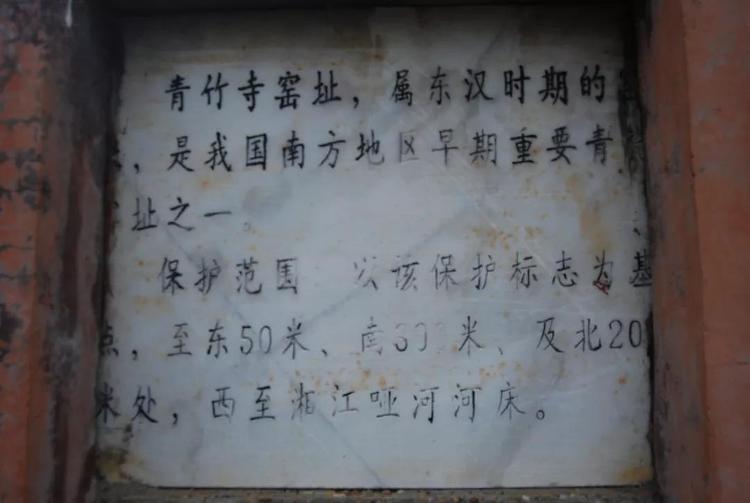 青竹寺窑址，属东汉时期的
，是我国南方地区早期重要青
址之一。
保护范围 以该保护标志为基
点，至东50米、南300米、及北20
米处，西至湘江哑河河床。